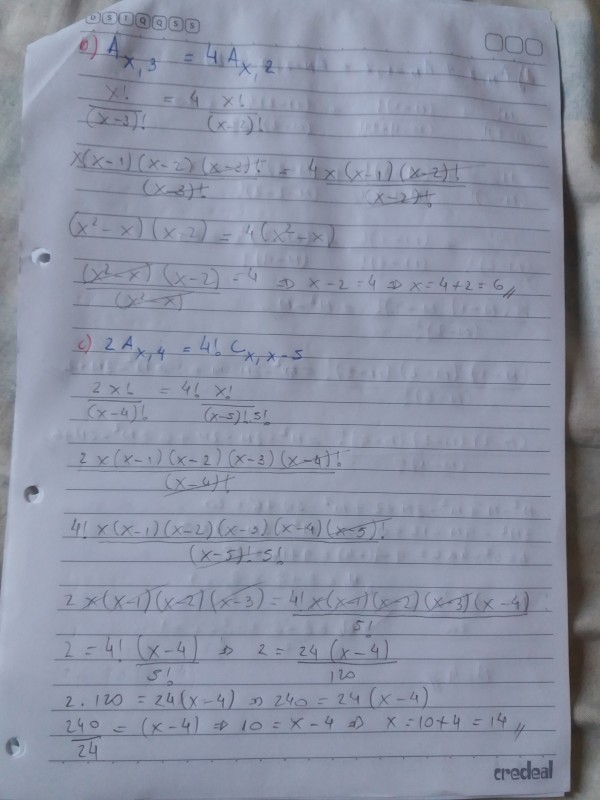 D S T Q Q S S
b) A x,3 = 4 A x,2
x!/(x-3)! = 4 x!/(x-2)!
x(x-1)(x-2)(x-3)!/(x-3)! = 4x(x-1)(x-2)!/(x-2)!
(x²-x)(x-2) = 4(x²-x)
(x²-x)(x-2)/(x²-x) = 4 ⇒ x-2=4 ⇒ x=4+2=6//
c) 2A x,4 = 4! C x,x-5
2x!/(x-4)! = 4! x!/(x-5)!5!
2x(x-1)(x-2)(x-3)(x-4)!/(x-4)!
4! x(x-1)(x-2)(x-3)(x-4)(x-5)!/(x-5)!5!
2x(x-1)(x-2)(x-3) = 4!x(x-1)(x-2)(x-3)(x-4)/5!
2 = 4! (x-4)/5! ⇒ 2 = 24(x-4)/120
2.120 = 24(x-4) ⇒ 240 = 24(x-4)
240/24 = (x-4) ⇒ 10 = x-4 ⇒ x=10+4=14//
credeal